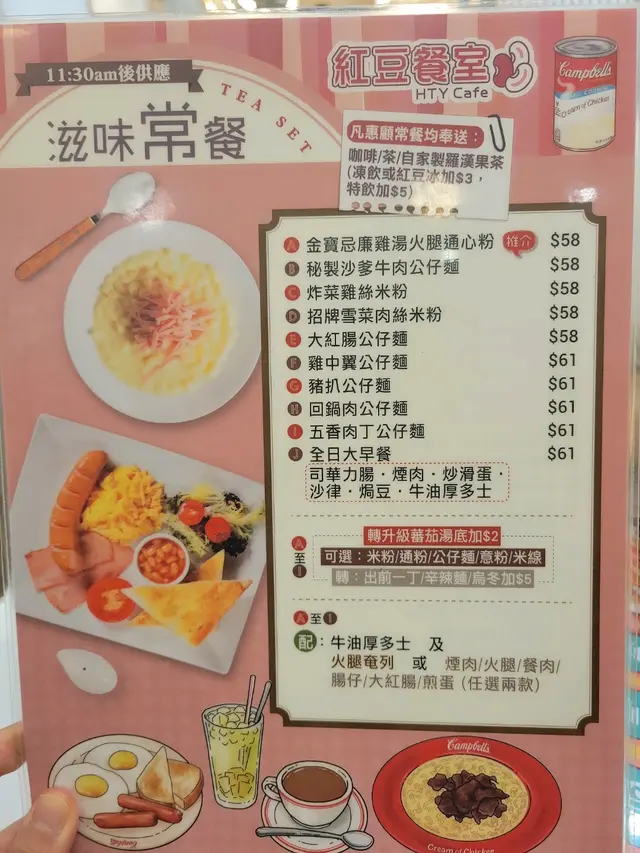 11:30am後供應
TEA SET
滋味常餐
紅豆餐室
HTY Cafe
Campbell's
Cream of Chicken
凡惠顧常餐均奉送:
咖啡/茶/自家製羅漢果茶
(凍飲或紅豆冰加$3,
特飲加$5)
A 金寶忌廉雞湯火腿通心粉 推介 $58
B 秘製沙爹牛肉公仔麵 $58
C 炸菜雞絲米粉 $58
D 招牌雪菜肉絲米粉 $58
E 大紅腸公仔麵 $58
F 雞中翼公仔麵 $61
G 豬扒公仔麵 $61
H 回鍋肉公仔麵 $61
I 五香肉丁公仔麵 $61
J 全日大早餐 $61
司華力腸·煙肉·炒滑蛋·
沙律·焗豆·牛油厚多士
A至I
轉升級蕃茄湯底加$2
可選:米粉/通粉/公仔麵/意粉/米線
轉:出前一丁/辛辣麵/烏冬加$5
A至I
配:牛油厚多士 及
火腿奄列 或 煙肉/火腿/餐肉/
腸仔/大紅腸/煎蛋(任選兩款)
Campbell's
Cream of Chicken